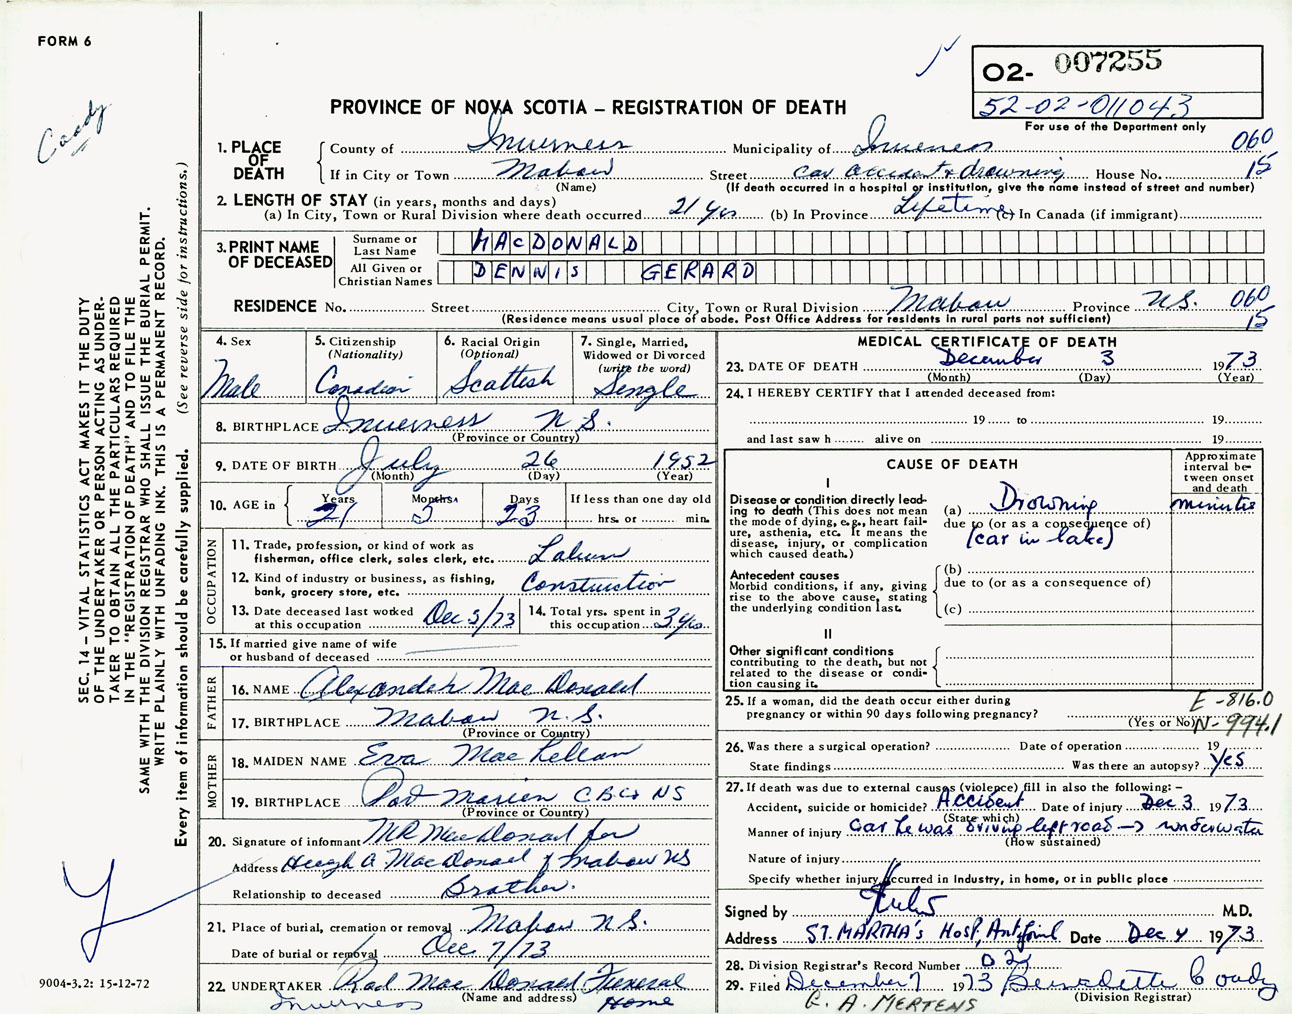 FORM 6
Coady
O2- 007255
52-02-011043
For use of the Department only
PROVINCE OF NOVA SCOTIA – REGISTRATION OF DEATH
1. PLACE OF DEATH
County of Inverness Municipality of Inverness 060
If in City or Town Mabou Street car accident & drowning House No. 15
(Name) (If death occurred in a hospital or institution, give the name instead of street and number)
2. LENGTH OF STAY (in years, months and days)
(a) In City, Town or Rural Division where death occurred 21 yrs (b) In Province Lifetime (c) In Canada (if immigrant)
3. PRINT NAME OF DECEASED
Surname or Last Name MACDONALD
All Given or Christian Names DENNIS GERARD
RESIDENCE No. Street City, Town or Rural Division Mabou Province N.S. 060
(Residence means usual place of abode. Post Office Address for residents in rural parts not sufficient) 15
4. Sex Male
5. Citizenship (Nationality) Canadian
6. Racial Origin (Optional) Scottish
7. Single, Married, Widowed or Divorced (write the word) Single
8. BIRTHPLACE Inverness N.S.
(Province or Country)
9. DATE OF BIRTH July 26 1952
(Month) (Day) (Year)
10. AGE in Years Months Days If less than one day old
21 5 23 hrs. or min.
OCCUPATION
11. Trade, profession, or kind of work as fisherman, office clerk, sales clerk, etc. Labour
12. Kind of industry or business, as fishing, bank, grocery store, etc. Construction
13. Date deceased last worked at this occupation Dec 3/73
14. Total yrs. spent in this occupation 3 yrs
15. If married give name of wife or husband of deceased
FATHER
16. NAME Alexander MacDonald
17. BIRTHPLACE Mabou N.S.
(Province or Country)
MOTHER
18. MAIDEN NAME Eva MacLellan
19. BIRTHPLACE Port Marien C B Co NS
(Province or Country)
20. Signature of informant MR MacDonald for
Address Hugh A MacDonald Mabou NS
Relationship to deceased Brother.
21. Place of burial, cremation or removal Mabou N.S.
Date of burial or removal Dec 7/73
22. UNDERTAKER Rod MacDonald Funeral
(Name and address)
Inverness Home
MEDICAL CERTIFICATE OF DEATH
23. DATE OF DEATH December 3 1973
(Month) (Day) (Year)
24. I HEREBY CERTIFY that I attended deceased from:
19 to 19
and last saw h alive on 19
CAUSE OF DEATH
Approximate interval between onset and death
I
Disease or condition directly leading to death (This does not mean the mode of dying, e.g., heart failure, asthenia, etc. It means the disease, injury, or complication which caused death.)
(a) Drowning minutes
due to (or as a consequence of)
(car in lake)
Antecedent causes
Morbid conditions, if any, giving rise to the above cause, stating the underlying condition last.
(b)
due to (or as a consequence of)
(c)
II
Other significant conditions
contributing to the death, but not related to the disease or condition causing it.
25. If a woman, did the death occur either during pregnancy or within 90 days following pregnancy?
(Yes or No)
E-816.0
N-994.1
26. Was there a surgical operation? Date of operation 19
State findings Was there an autopsy? Yes
27. If death was due to external causes (violence) fill in also the following: –
Accident, suicide or homicide? Accident Date of injury Dec 3 1973
(State which)
Manner of injury Car he was driving left road → underwater
(How sustained)
Nature of injury
Specify whether injury occurred in Industry, in home, or in public place
Signed by M.D.
Address ST. MARTHA's Hosp, Date Dec 4 1973
28. Division Registrar's Record Number
29. Filed December 7 1973 Bernadette Coady
(Division Registrar)
A. MERTENS
SEC. 14 – VITAL STATISTICS ACT MAKES IT THE DUTY
OF THE UNDERTAKER OR PERSON ACTING AS UNDER-
TAKER TO OBTAIN ALL THE PARTICULARS REQUIRED
IN THE "REGISTRATION OF DEATH" AND TO FILE THE
SAME WITH THE DIVISION REGISTRAR WHO SHALL ISSUE THE BURIAL PERMIT.
WRITE PLAINLY WITH UNFADING INK. THIS IS A PERMANENT RECORD.
Every item of information should be carefully supplied. (See reverse side for instructions.)
9004-3.2: 15-12-72